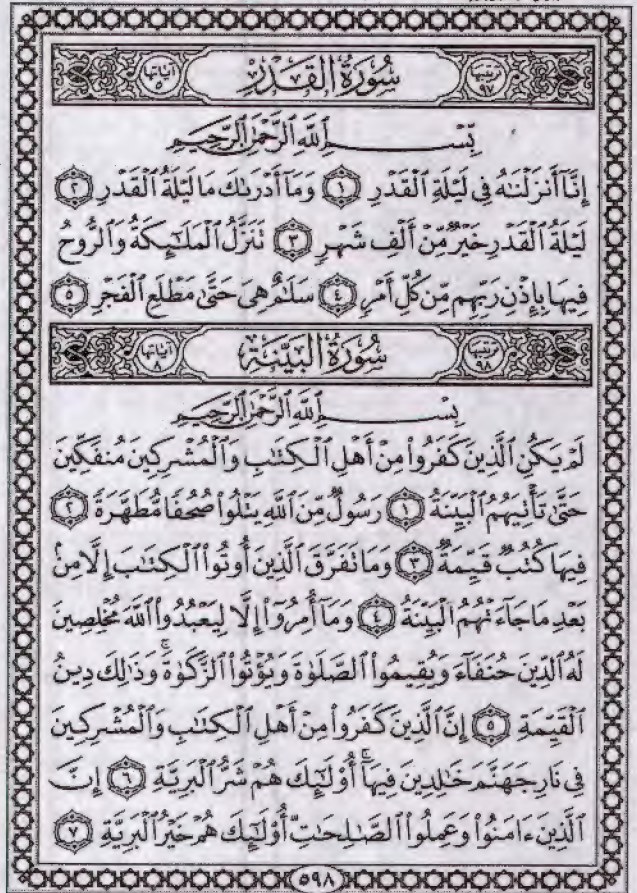 ترتيبها ٩٧ سُورَةُ الْقَدْرِ آياتها ٥
بِسْمِ ٱللَّهِ ٱلرَّحْمَٰنِ ٱلرَّحِيمِ
إِنَّآ أَنزَلْنَٰهُ فِى لَيْلَةِ ٱلْقَدْرِ ١ وَمَآ أَدْرَىٰكَ مَا لَيْلَةُ ٱلْقَدْرِ ٢
لَيْلَةُ ٱلْقَدْرِ خَيْرٌ مِّنْ أَلْفِ شَهْرٍ ٣ تَنَزَّلُ ٱلْمَلَٰٓئِكَةُ وَٱلرُّوحُ
فِيهَا بِإِذْنِ رَبِّهِم مِّن كُلِّ أَمْرٍ ٤ سَلَٰمٌ هِىَ حَتَّىٰ مَطْلَعِ ٱلْفَجْرِ ٥
ترتيبها ٩٨ سُورَةُ الْبَيِّنَةِ آياتها ٨
بِسْمِ ٱللَّهِ ٱلرَّحْمَٰنِ ٱلرَّحِيمِ
لَمْ يَكُنِ ٱلَّذِينَ كَفَرُوا۟ مِنْ أَهْلِ ٱلْكِتَٰبِ وَٱلْمُشْرِكِينَ مُنفَكِّينَ
حَتَّىٰ تَأْتِيَهُمُ ٱلْبَيِّنَةُ ١ رَسُولٌ مِّنَ ٱللَّهِ يَتْلُوا۟ صُحُفًا مُّطَهَّرَةً ٢
فِيهَا كُتُبٌ قَيِّمَةٌ ٣ وَمَا تَفَرَّقَ ٱلَّذِينَ أُوتُوا۟ ٱلْكِتَٰبَ إِلَّا مِنۢ
بَعْدِ مَا جَآءَتْهُمُ ٱلْبَيِّنَةُ ٤ وَمَآ أُمِرُوٓا۟ إِلَّا لِيَعْبُدُوا۟ ٱللَّهَ مُخْلِصِينَ
لَهُ ٱلدِّينَ حُنَفَآءَ وَيُقِيمُوا۟ ٱلصَّلَوٰةَ وَيُؤْتُوا۟ ٱلزَّكَوٰةَ ۚ وَذَٰلِكَ دِينُ
ٱلْقَيِّمَةِ ٥ إِنَّ ٱلَّذِينَ كَفَرُوا۟ مِنْ أَهْلِ ٱلْكِتَٰبِ وَٱلْمُشْرِكِينَ
فِى نَارِ جَهَنَّمَ خَٰلِدِينَ فِيهَآ ۚ أُو۟لَٰٓئِكَ هُمْ شَرُّ ٱلْبَرِيَّةِ ٦ إِنَّ
ٱلَّذِينَ ءَامَنُوا۟ وَعَمِلُوا۟ ٱلصَّٰلِحَٰتِ أُو۟لَٰٓئِكَ هُمْ خَيْرُ ٱلْبَرِيَّةِ ٧
٥٩٨